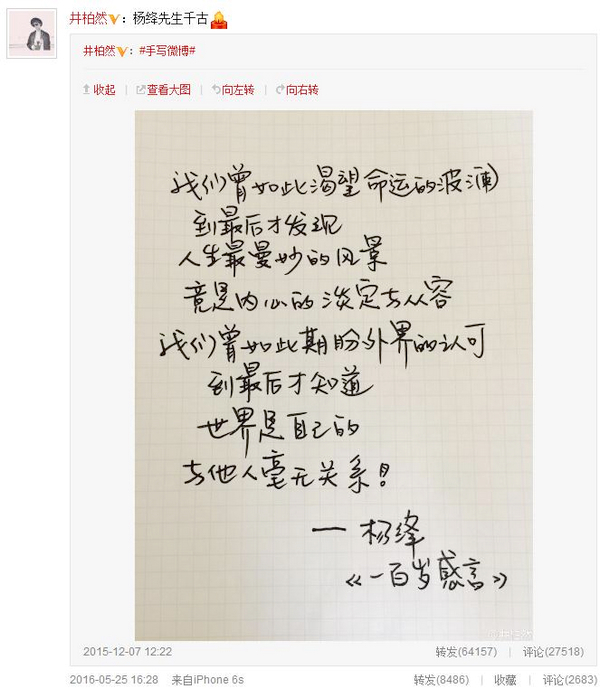 井柏然：杨绛先生千古
井柏然：#手写微博#
收起 | 查看大图 | 向左转 | 向右转
我们曾如此渴望命运的波澜
到最后才发现
人生最曼妙的风景
竟是内心的淡定与从容
我们曾如此期盼外界的认可
到最后才知道
世界是自己的
与他人毫无关系！
— 杨绛
《一百岁感言》
@井柏然
2015-12-07 12:22 转发(64157) | 评论(27518)
2016-05-25 16:28 来自iPhone 6s 转发(8486) | 收藏 | 评论(2683)